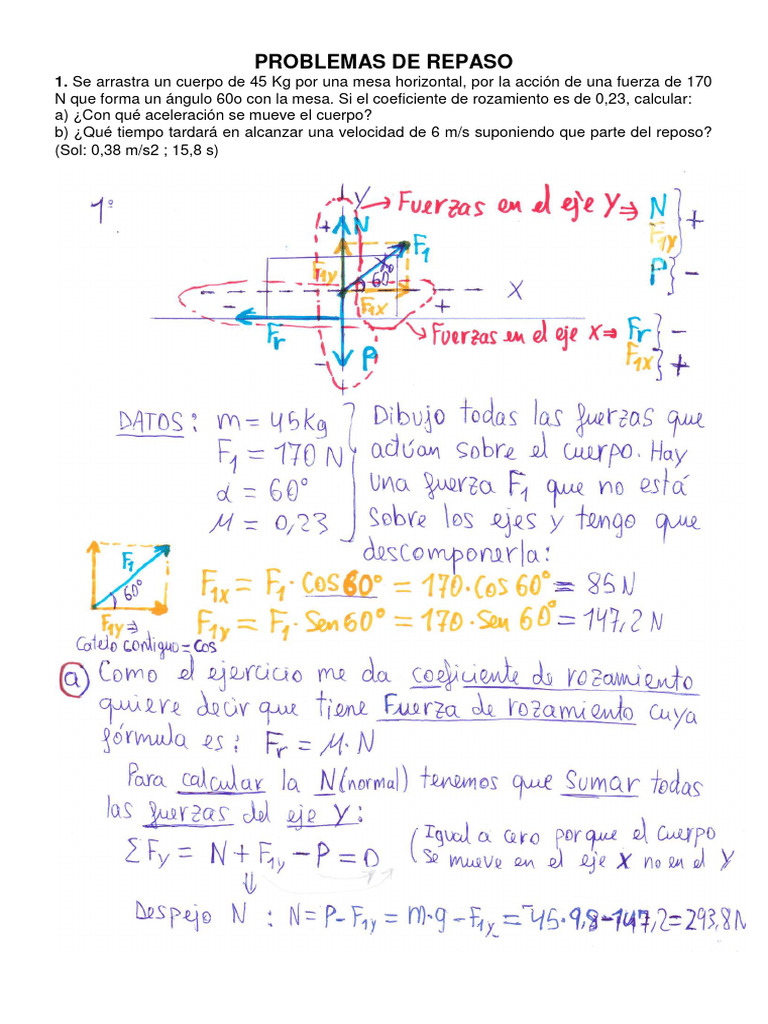 PROBLEMAS DE REPASO
1. Se arrastra un cuerpo de 45 Kg por una mesa horizontal, por la acción de una fuerza de 170
N que forma un ángulo 60o con la mesa. Si el coeficiente de rozamiento es de 0,23, calcular:
a) ¿Con qué aceleración se mueve el cuerpo?
b) ¿Qué tiempo tardará en alcanzar una velocidad de 6 m/s suponiendo que parte del reposo?
(Sol: 0,38 m/s2 ; 15,8 s)
1º
Y → Fuerzas en el eje Y ⇒ N
F1y
+
P
-
+ N
F1
F1y
60
F1x
- X
+
Fr
P
-
→ Fuerzas en el eje X ⇒ Fr -
F1x +
DATOS: m = 45kg
F1 = 170 N
α = 60°
μ = 0,23
Dibujo todas las fuerzas que
actúan sobre el cuerpo. Hay
una fuerza F1 que no está
sobre los ejes y tengo que
descomponerla:
F1
60°
F1y ⇒
Cateto contiguo = cos
F1x = F1 · Cos 60° = 170 · Cos 60° = 85 N
F1y = F1 · Sen 60° = 170 · Sen 60° = 147,2 N
a) Como el ejercicio me da coeficiente de rozamiento
quiere decir que tiene Fuerza de rozamiento cuya
fórmula es: Fr = μ · N
Para calcular la N (normal) tenemos que sumar todas
las fuerzas del eje Y:
ΣFy = N + F1y - P = 0 (Igual a cero porque el cuerpo
se mueve en el eje X no en el Y
⇓
Despejo N : N = P - F1y = m·g - F1y = 45·9,8-147,2 = 293,8 N